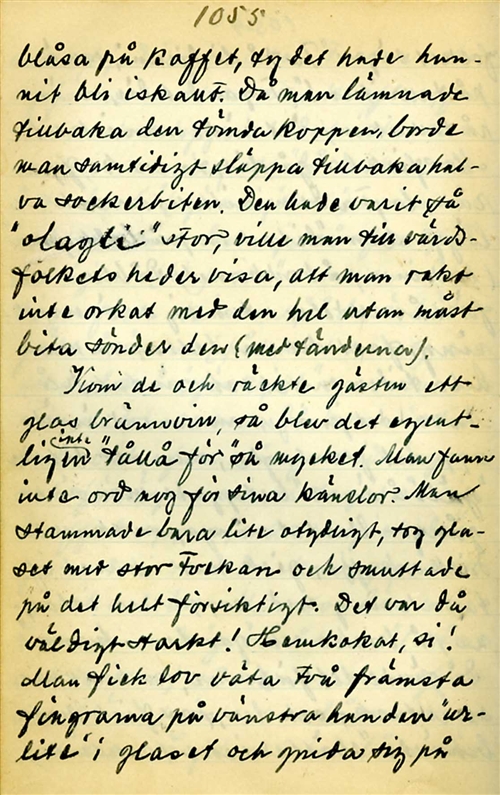 1055
blåsa på kaffet, ty det hade hun-
nit bli iskallt. Då man lämnade
tillbaka den tömda koppen, borde
man samtidigt släppa tillbaka hal-
va sockerbiten. Den hade varit så
"olagli" stor, ville man till värds-
folkets heder visa, att man rakt
inte orkat med den hel utan måst
bita sönder den (med tänderna).
Kom de och räckte gästen ett
glas brännvin, så blev det egent-
ligen inte "tållå för" så mycket. Man fann
inte ord nog för sina känslor. Man
stammade bara lite otydligt, tog gla-
set med stor tockan och smuttade
på det helt försiktigt. Det var då
väldigt starkt! Hemkokat, si!
Man fick lov väta två främsta
fingrarna på vänstra handen "ur-
lite" i glaset och gnida sig på